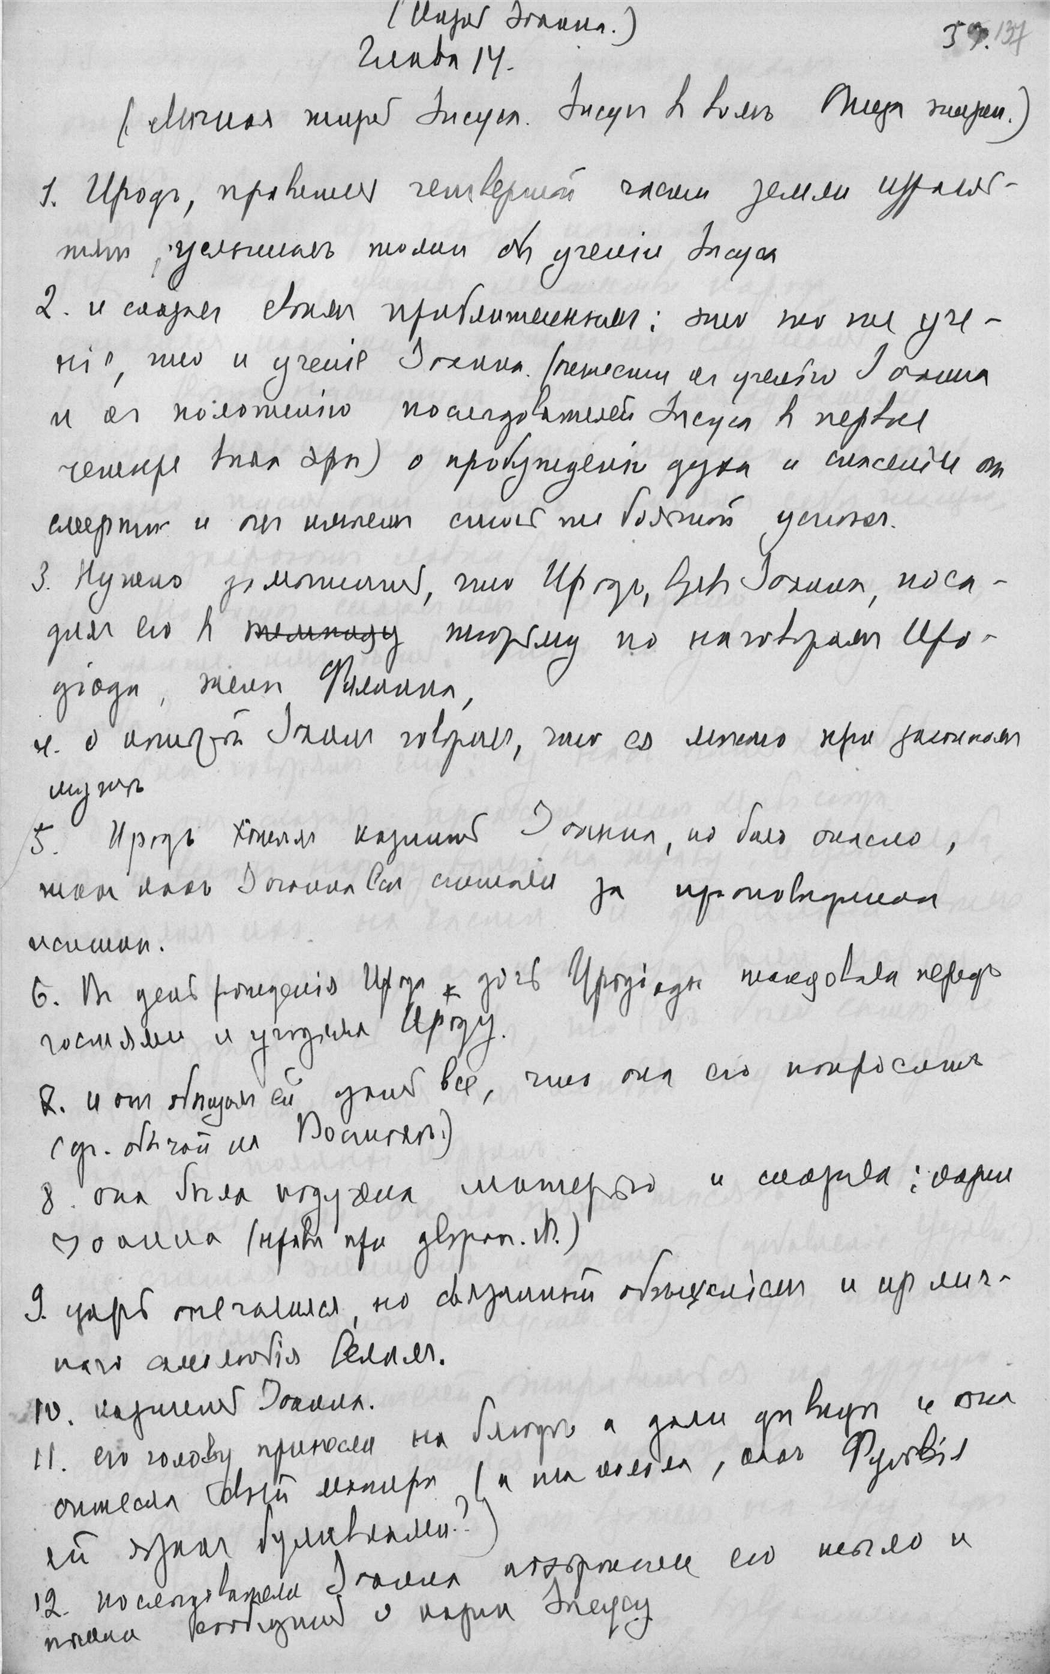 (Казнь Іоанна.)
59. 137
Глава 14.
(Личная жизнь Іисуса. Іисусъ
1. Иродъ, правитель четвертой части земли израиль-
тянъ, услышалъ толки объ ученіи Іисуса
2. и сказалъ своимъ приближеннымъ: это то же уче-
ніе, что и ученіе Іоанна. (отнести къ ученію Іоанна
и къ положенію последователей Іисуса въ первые
четыре вѣка эры) о пробужденіи духа и спасеніи отъ
смерти и онъ имѣетъ успехъ.
3. Нужно замѣтить, что Иродъ, взявъ Іоанна, поса-
дилъ его въ темницу тюрьму по наговорамъ Иро-
діады, жены Филиппа,
4. о которой Іоаннъ говорилъ, что ея можно при законномъ
мужѣ
5. Иродъ хотелъ казнить Іоанна, но было опасно,
такъ какъ Іоанна всѣ считали за проповѣдника
истины.
6. Въ день рожденія Ирода дочь Иродіады танцовала передъ
гостями и угодила Ироду.
7. и онъ обещалъ ей дать все, что она его попроситъ
(др. обычай на Востокѣ.)
8. она была научена матерью и сказала: казни
Іоанна (нравы при дворах.)
9. царь опечалился, но связанный обѣщаніемъ и из лич-
наго самолюбія велѣлъ.
10. казнить Іоанна.
11. его голову принесли на блюдѣ и дали дѣвицѣ и она
отнесла своей матери (и та колола, какъ Фульвія
ей языкъ булавками?)
12. последователи Іоанна похоронили его тѣло и
пошли сообщить о казни Іисусу